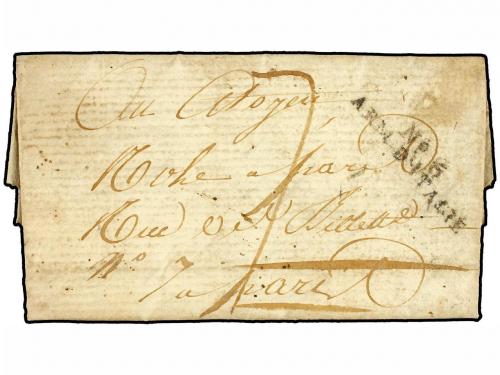 Au Citoyen
Roche a paris
Rue des Billettes
N° 7 a paris
7
N° 6
ARM. D'ITALIE